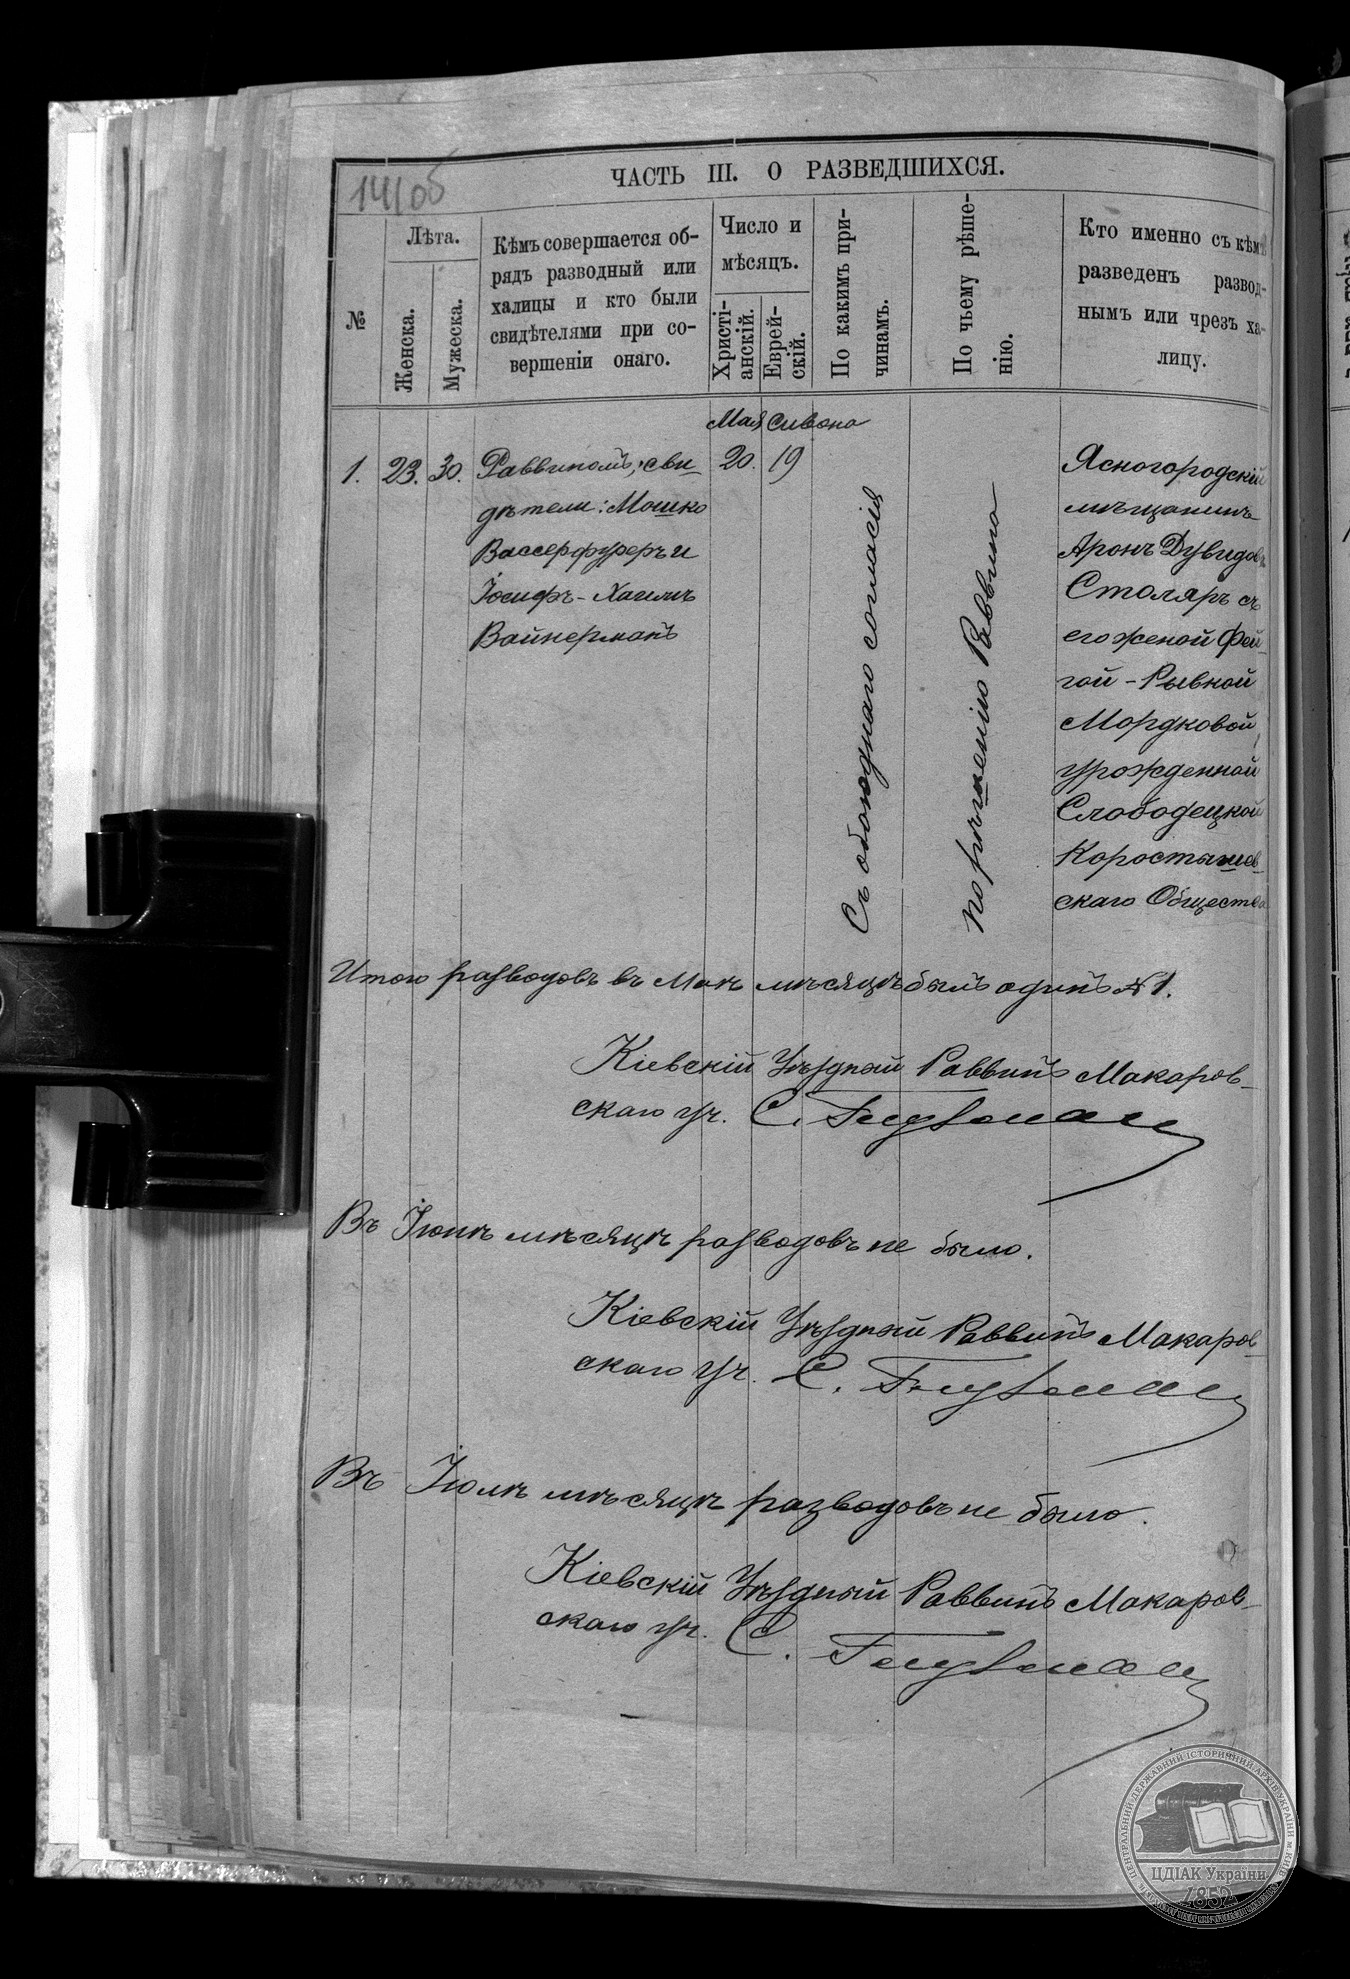 14/об
ЧАСТЬ III. О РАЗВЕДШИХСЯ.
№
Лѣта.
Женска.
Мужеска.
Кѣмъ совершается об-
рядъ разводный или
халицы и кто были
свидѣтелями при со-
вершеніи онаго.
Число и
мѣсяцъ.
Христі-
анскій.
Еврей-
скій.
По какимъ при-
чинамъ.
По чьему рѣше-
нію.
Кто именно съ кѣмъ
разведенъ развод-
нымъ или чрезъ ха-
лицу.
Мая Сивона
1. 23. 30.
Раввиномъ; сви-
дѣтели: Мошко
Вассерфуреръ и
Іосифъ-Хаимъ
Вайнерманъ
20. 19
Съ обоюднаго согласія
По рѣшенію Раввина
Ясногородскій
мѣщанинъ
Аронъ Дувидовъ
Столяръ съ
его женой Фей-
гой-Рывкой
Мордковой,
урожденной
Слободецкой
Коростышев-
скаго Общества
Итого разводовъ въ Маѣ мѣсяцѣ былъ одинъ №1.
Кіевскій Уѣздный Раввинъ Макаров-
скаго уч. С.
Въ Іюнѣ мѣсяцѣ разводовъ не было.
Кіевскій Уѣздный Раввинъ Макаров-
скаго уч. С.
Въ Іюлѣ мѣсяцѣ разводовъ не было.
Кіевскій Уѣздный Раввинъ Макаров-
скаго уч. С.
ЦЕНТРАЛЬНИЙ ДЕРЖАВНИЙ ІСТОРИЧНИЙ АРХІВ УКРАЇНИ м. КИЇВ
ЦДІАК України
1852